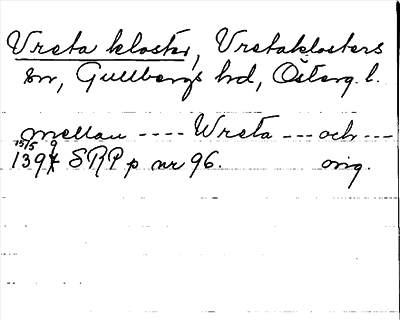 Vreta kloster, Vretaklosters
sn, Gullbergs hd, Österg. l.
mellan ---- Wreta --- och ---
15/5 9
1394 SRP p nr 96. orig.